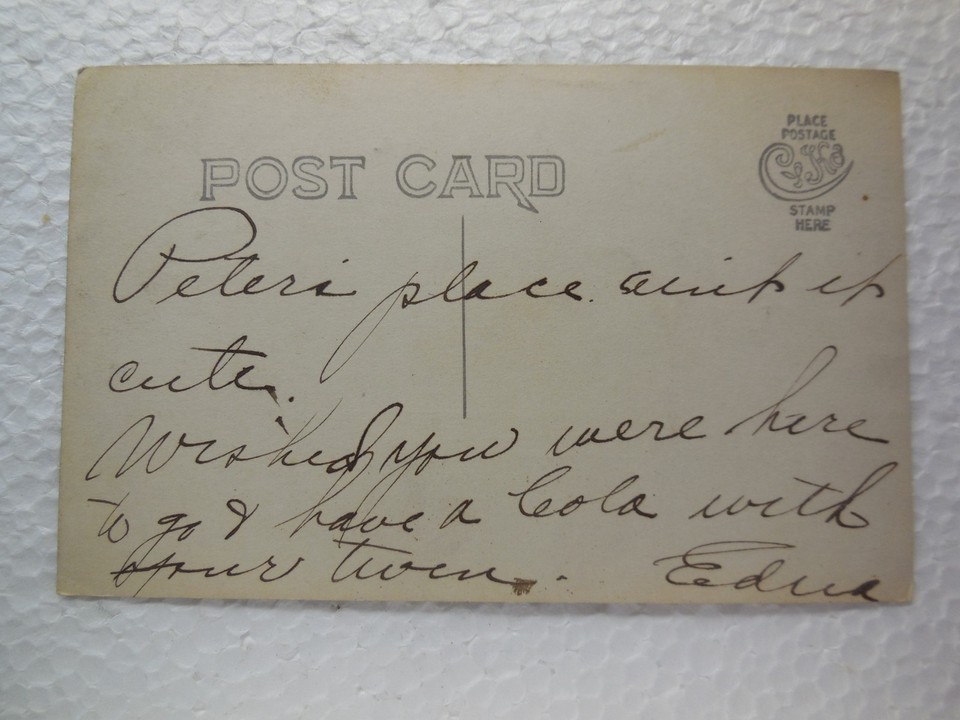 POST CARD
PLACE
POSTAGE
STAMP
HERE
Peters place. aint it
cute.
Wished you were here
to go & have a Cola with
your twin. Edna